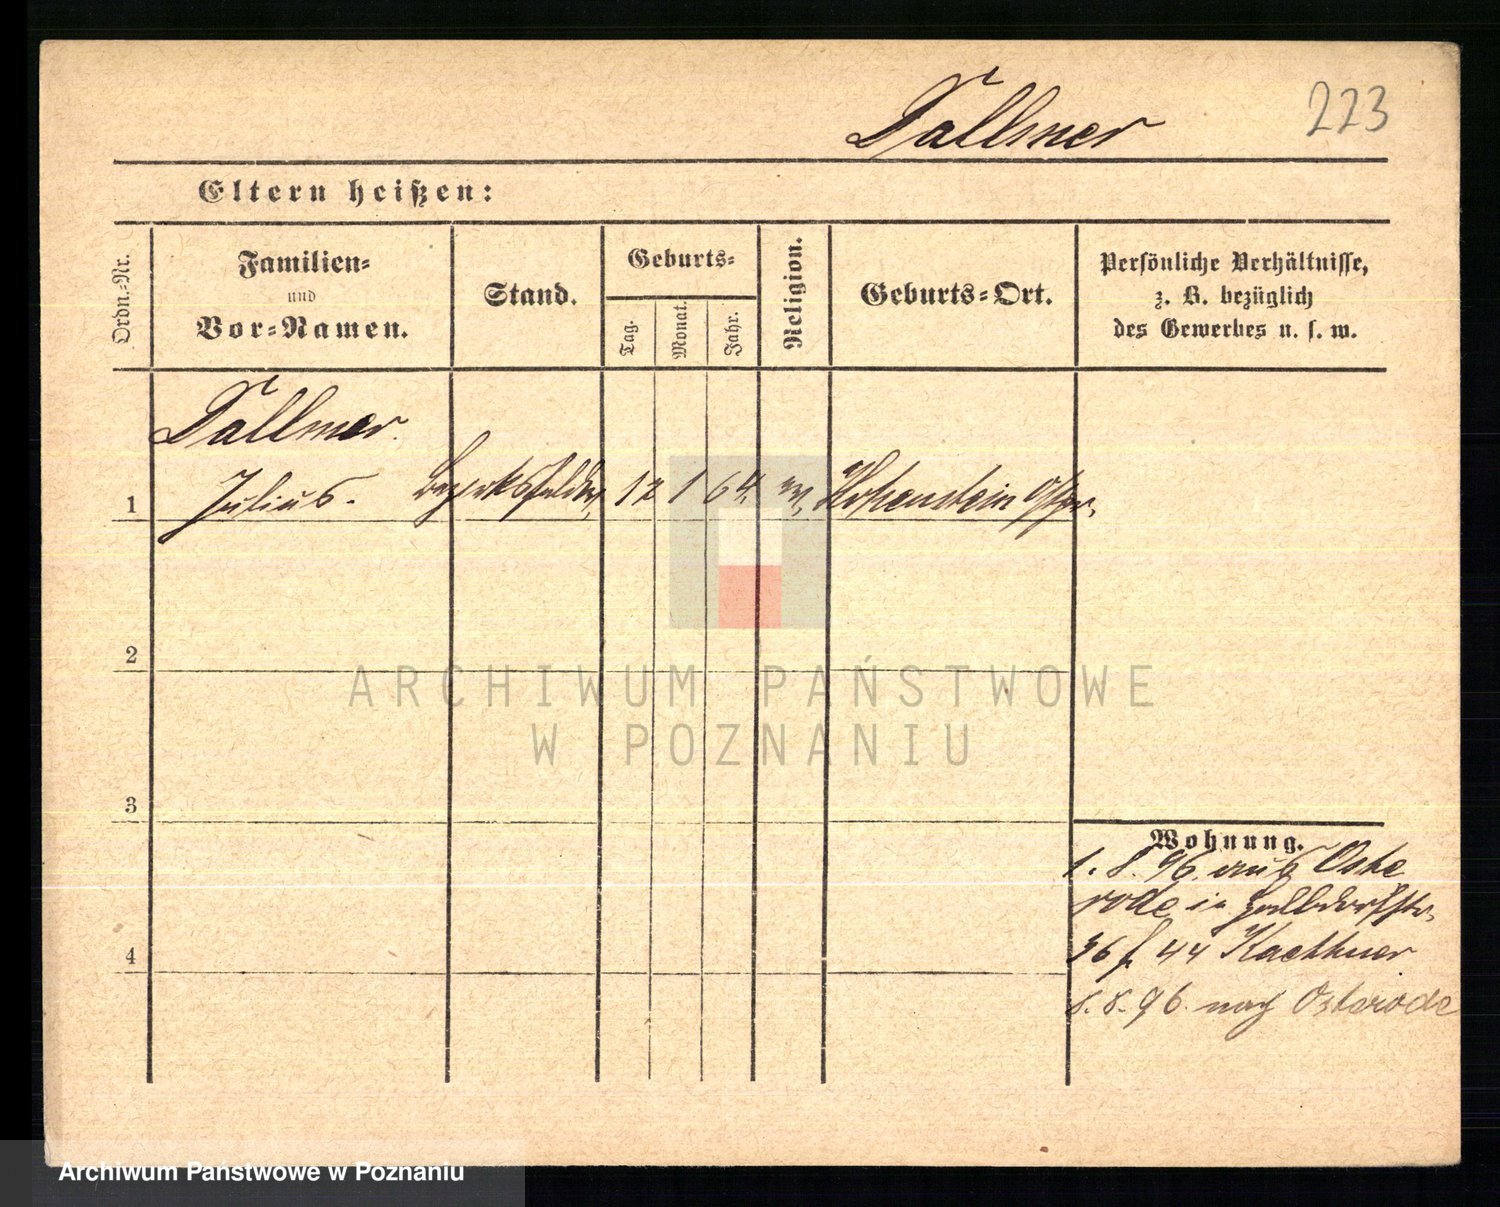 Tallmer
223
Eltern heißen:
Ordn.-Nr.
Familien-
und
Vor-Namen.
Stand.
Geburts-
Tag.
Monat.
Jahr.
Religion.
Geburts-Ort.
Persönliche Verhältnisse,
z. B. bezüglich
des Gewerbes u. s. w.
Tallmer
1 Julius. 12 1 64 Hohenstein Ostpr.
2
3
4
Wohnung.
1. 8. 96. aus Oste
rode in
36 44
8. 8. 96. nach Osterode
ARCHIWUM PAŃSTWOWE
W POZNANIU
Archiwum Państwowe w Poznaniu